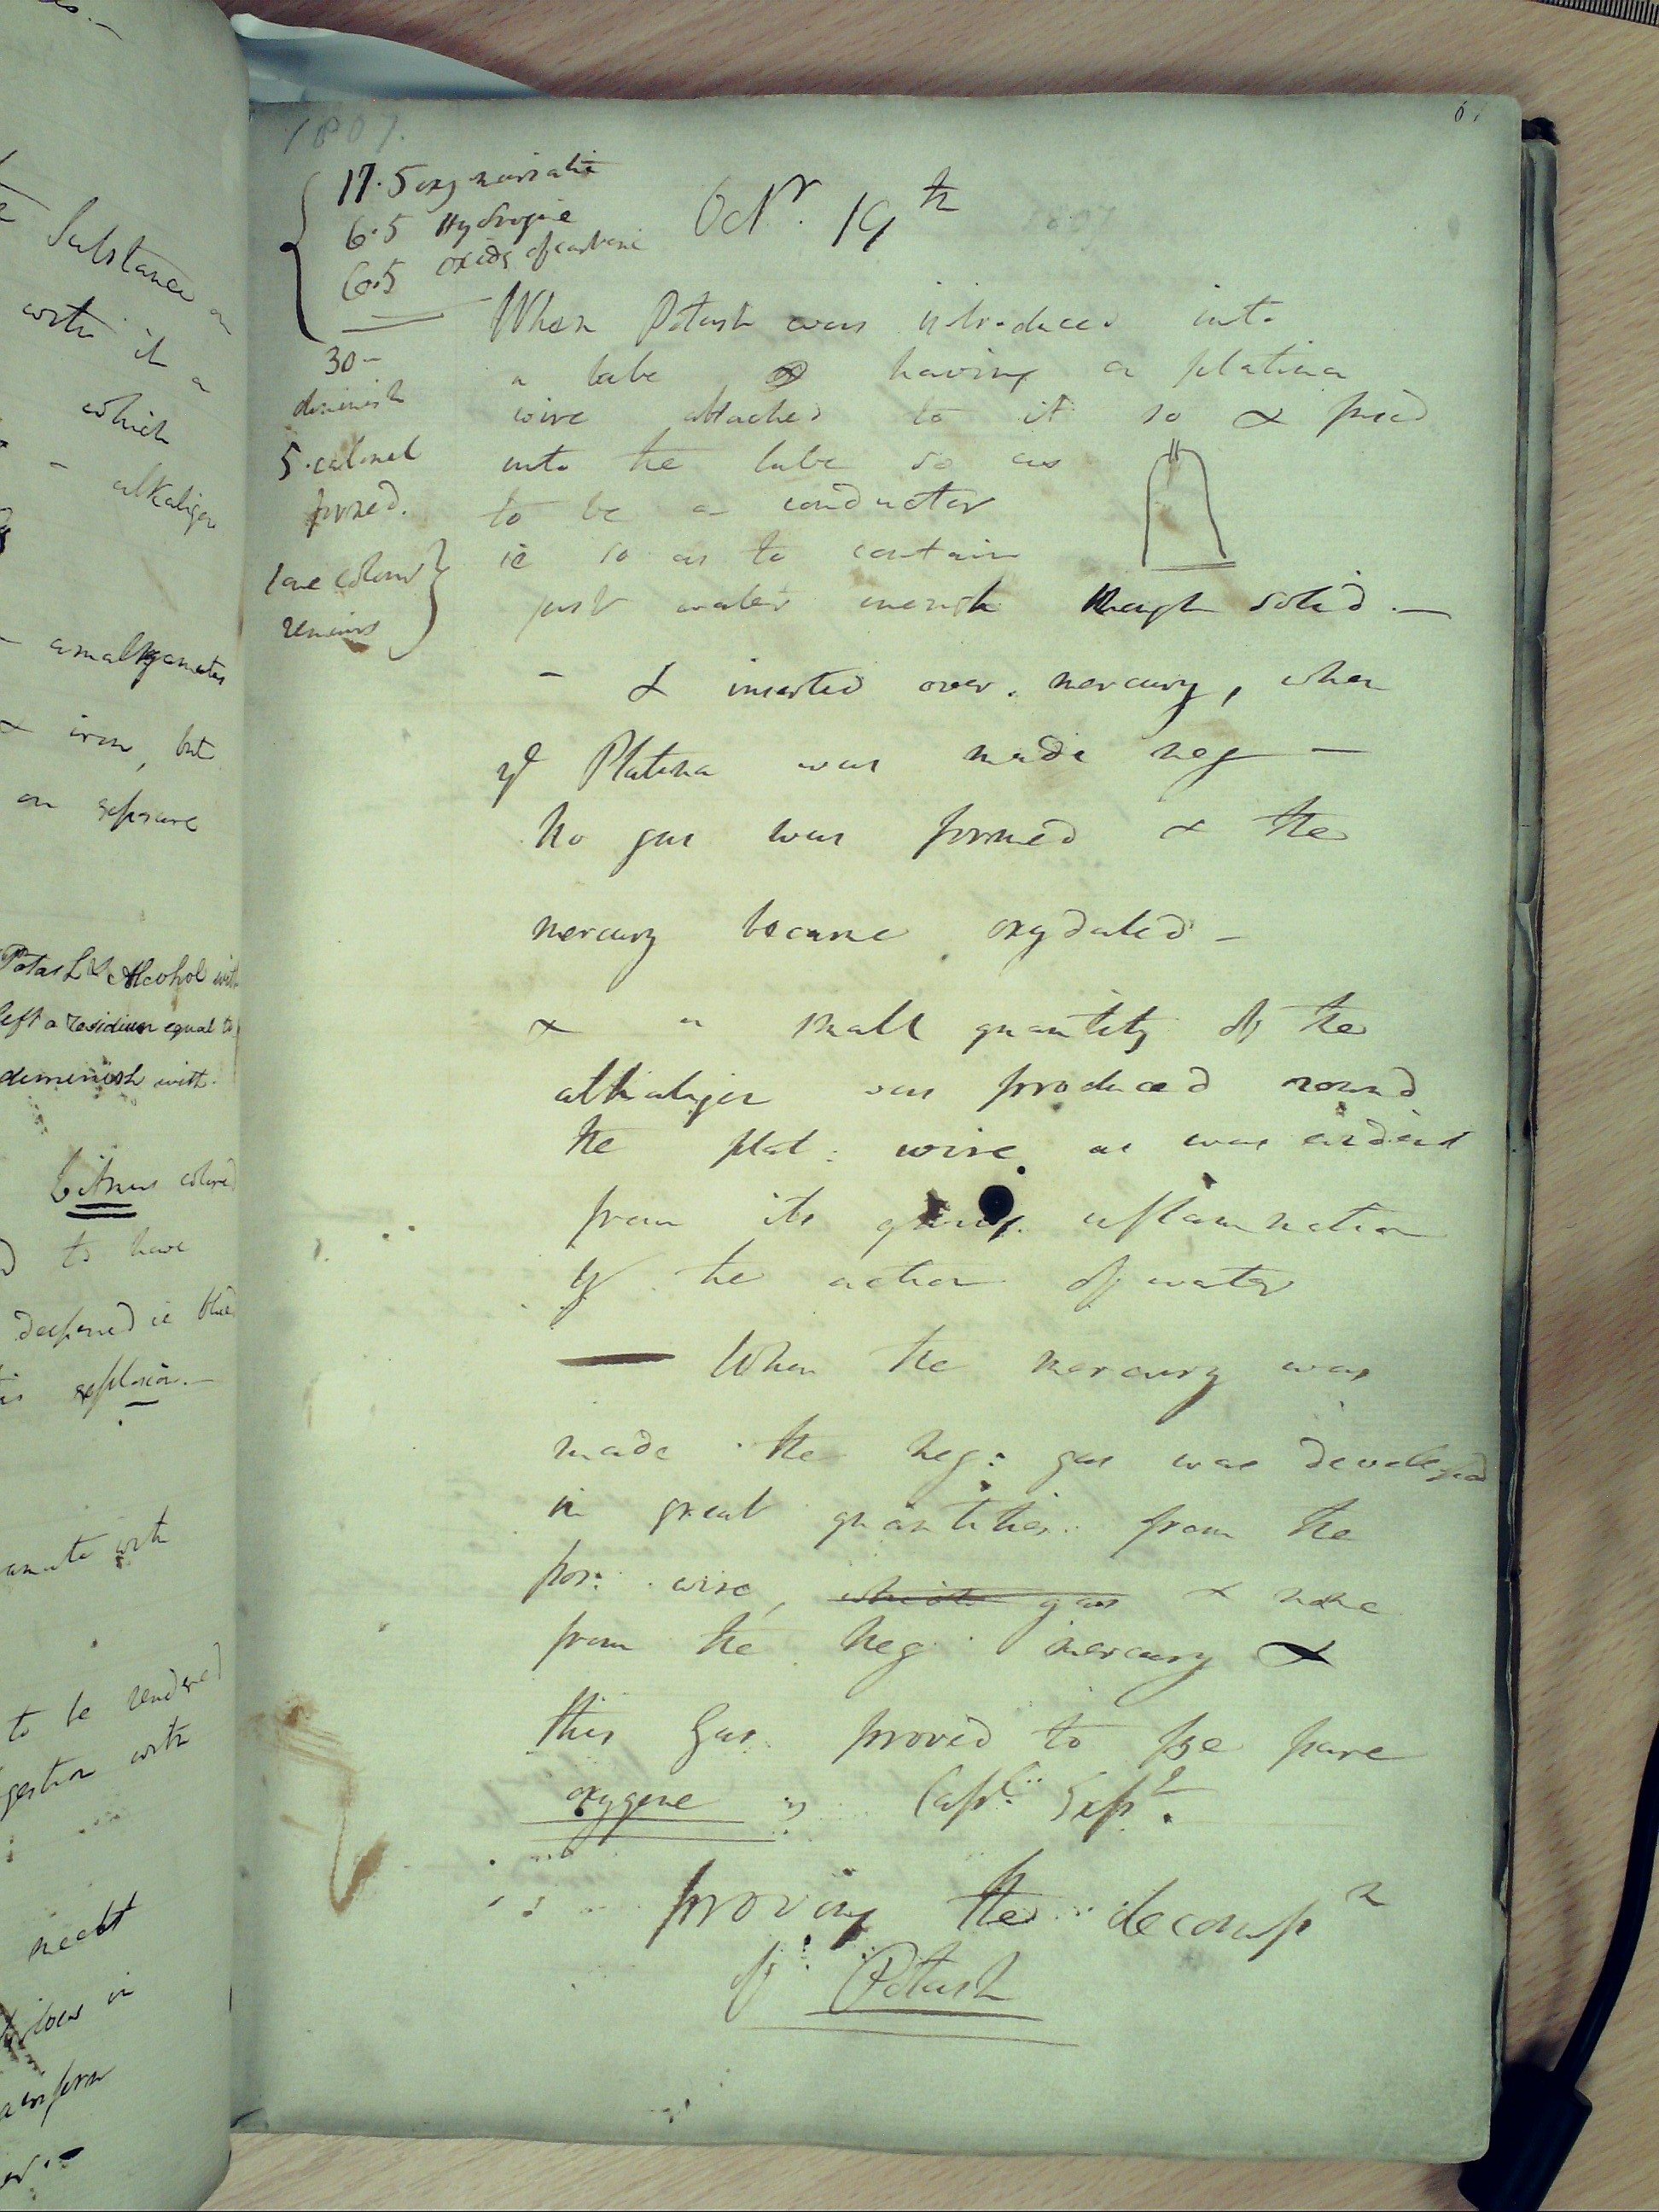 Substance
with it a
which
alkaligen
amalgamates
& iron, but
on exposure
Potash & Alcohol with
left a residium equal to
deminish with
to have
deepened ie blue
explosion.—
with
to be rendered
gestion with
neckt
in
1807.
17.5 oxy muriatic
6.5 Hydrogine
6.5 oxide of carbonic
30-
diminish
5.
formed.
remains
Octr. 19th
When Potash was introduced into
a tube having a platina
wire attached to it so & fused
into the tube so as
to be a conductor
ie so as to contain
just water enough though solid.—
- & inserted over mercury, when
ye Platina was made neg —
No gas was formed & the
mercury became oxydated -
& a small quantity of the
alkaligen was produced round
the plat: wire as was evident
from its inflammation
by the action of water
— When the mercury was
made the neg: gas was developed
in great quantities from the
pos: wire, which gas & none
from the neg mercury &
this Gas proved to be pure
oxygene Capl: Expt.
proving the decompn
of Potash